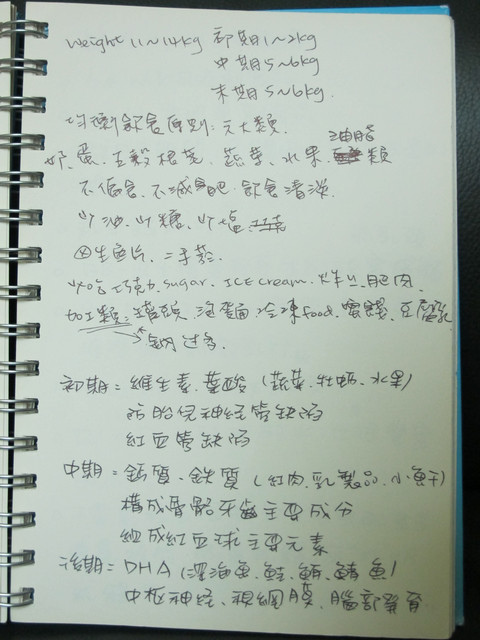 weight 11~14kg 初期1~2kg
中期5~6kg
末期5~6kg.
均衡飲食原則: 六大類.
奶、蛋、五穀根莖、蔬菜、水果 油脂類
不偏食、不減肥 飲食清淡
少油、少糖、少塩
⊗生魚片、二手菸.
少吃巧克力.sugar. ICE cream. 炸. 肥肉
加工類: 罐頭 泡麵 冷凍food. 蜜餞、豆腐乳
鈉过多
初期= 維生素.葉酸 (蔬菜.牡蠣.水果)
防胎兒神经管缺陷
紅血管缺陷
中期= 鈣質、鉄質 (紅肉.乳製品.小魚干)
構成骨骼牙齒主要成分
組成紅血球主要元素
後期= DHA (深海魚.鮭.鮪.鯖魚)
中枢神经、視網膜、腦部發育